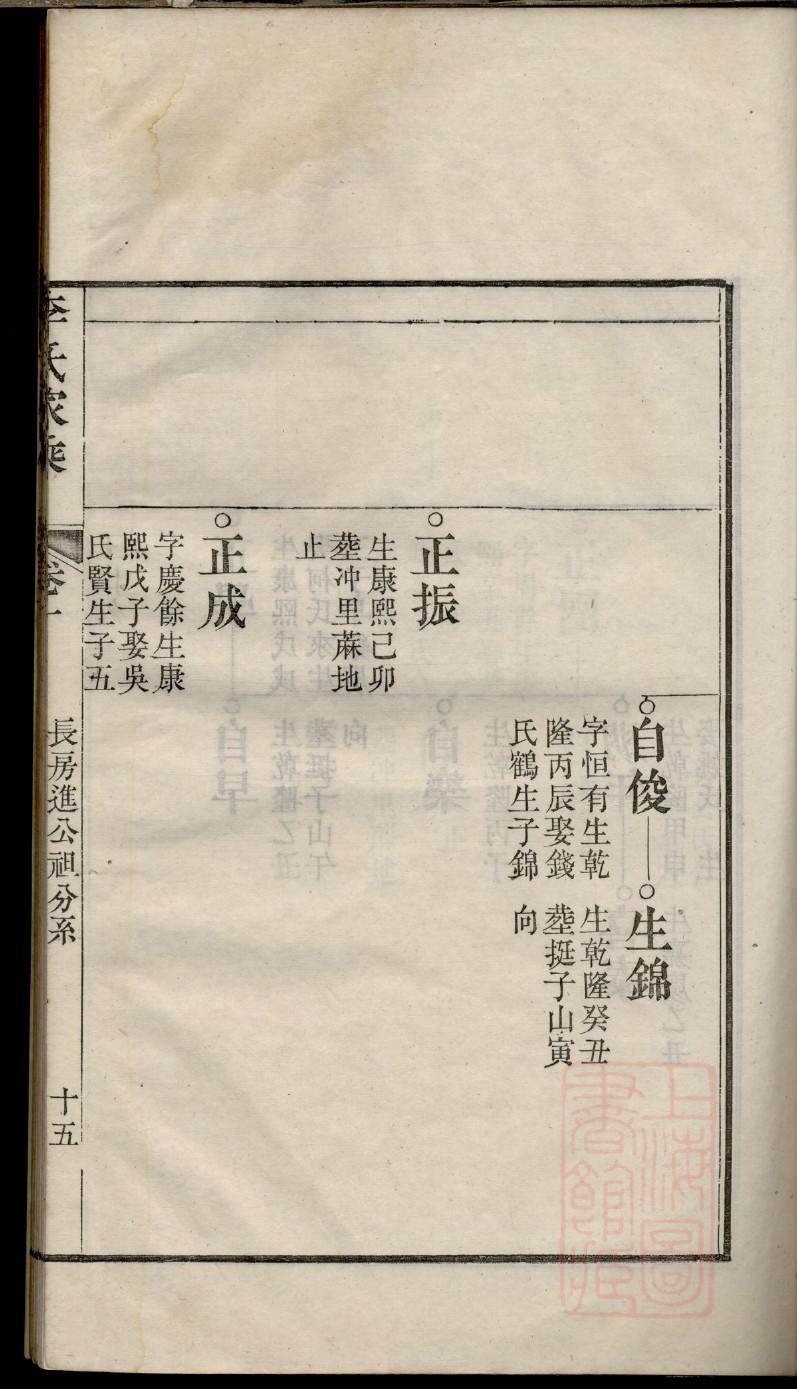 自俊
字恒有生乾
隆丙辰娶錢
氏鶴生子錦
生錦
生乾隆癸丑
塟挺子山寅
向
正振
生康熙己卯
塟冲里蔴地
止
正成
字慶餘生康
熙戊子娶吳
氏賢生子五
李氏家乘
卷一
長房進公祖分系
十五
上海圖
書館藏